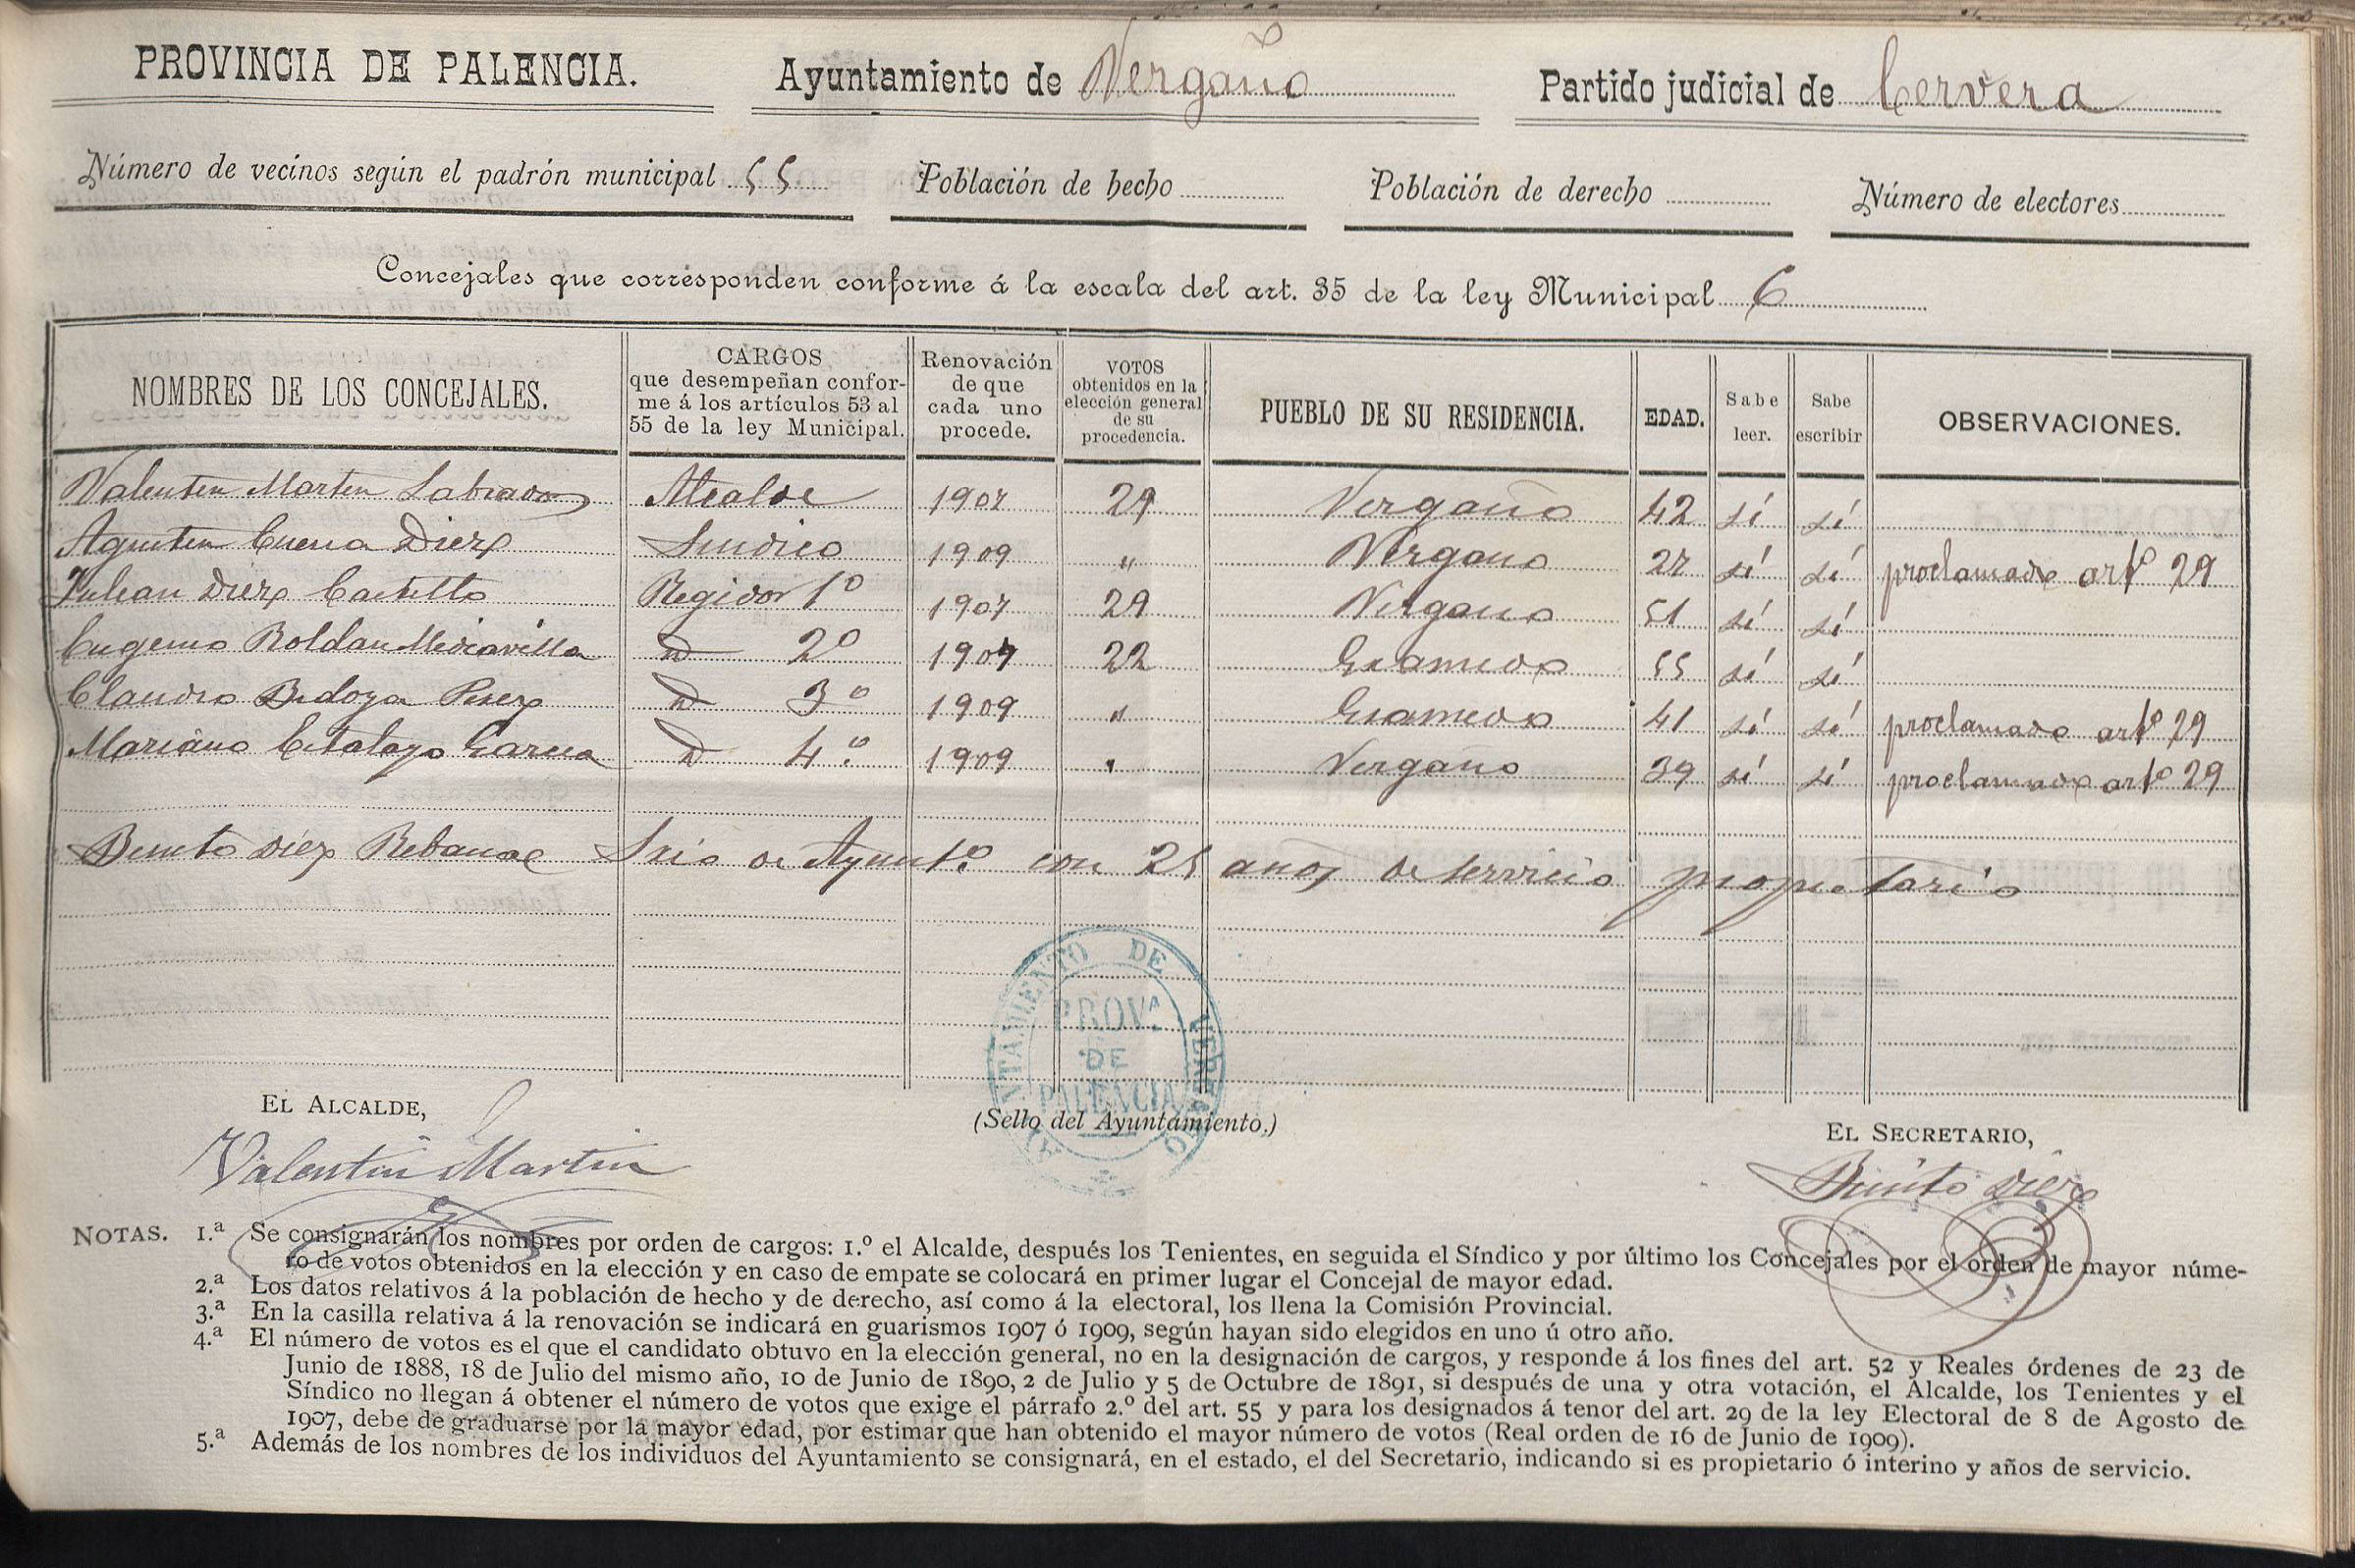 PROVINCIA DE PALENCIA. Ayuntamiento de Vergaño Partido judicial de Cervera
Número de vecinos según el padrón municipal 55 Población de hecho Población de derecho Número de electores
Concejales que corresponden conforme á la escala del art. 35 de la ley Municipal 6
NOMBRES DE LOS CONCEJALES. CARGOS que desempeñan confor-me á los artículos 53 al 55 de la ley Municipal. Renovación de que cada uno procede. VOTOS obtenidos en la elección general de su procedencia. PUEBLO DE SU RESIDENCIA. EDAD. Sabe leer. Sabe escribir OBSERVACIONES.
Valentin Martin Labrador Alcalde 1907 29 Vergaño 42 sí sí
Agustin Cuena Diez Sindico 1909 " Vergaño 27 sí sí proclamado artº 29
Julian Diez Castillo Regidor 1º 1907 29 Vergaño 51 sí sí
Eugenio Roldan Mediavilla D 2º 1907 22 Gramedo 55 sí sí
Claudio Bedoya Perez D 3º 1909 " Gramedo 41 sí sí proclamado artº 29
Mariano Garcia D 4º 1909 " Vergaño 39 sí sí proclamado artº 29
Benito Diez Rebanal Srio de Ayuntº con 25 años de servicio propietario
AYUNTAMIENTO DE VERGAÑO
PROVª
DE
PALENCIA
EL ALCALDE, (Sello del Ayuntamiento.) EL SECRETARIO,
Valentin Martin Benito Diez
NOTAS. 1.ª Se consignarán los nombres por orden de cargos: 1.º el Alcalde, después los Tenientes, en seguida el Síndico y por último los Concejales por el orden de mayor núme-
ro de votos obtenidos en la elección y en caso de empate se colocará en primer lugar el Concejal de mayor edad.
2.ª Los datos relativos á la población de hecho y de derecho, así como á la electoral, los llena la Comisión Provincial.
3.ª En la casilla relativa á la renovación se indicará en guarismos 1907 ó 1909, según hayan sido elegidos en uno ú otro año.
4.ª El número de votos es el que el candidato obtuvo en la elección general, no en la designación de cargos, y responde á los fines del art. 52 y Reales órdenes de 23 de
Junio de 1888, 18 de Julio del mismo año, 10 de Junio de 1890, 2 de Julio y 5 de Octubre de 1891, si después de una y otra votación, el Alcalde, los Tenientes y el
Síndico no llegan á obtener el número de votos que exige el párrafo 2.º del art. 55 y para los designados á tenor del art. 29 de la ley Electoral de 8 de Agosto de
1907, debe de graduarse por la mayor edad, por estimar que han obtenido el mayor número de votos (Real orden de 16 de Junio de 1909).
5.ª Además de los nombres de los individuos del Ayuntamiento se consignará, en el estado, el del Secretario, indicando si es propietario ó interino y años de servicio.